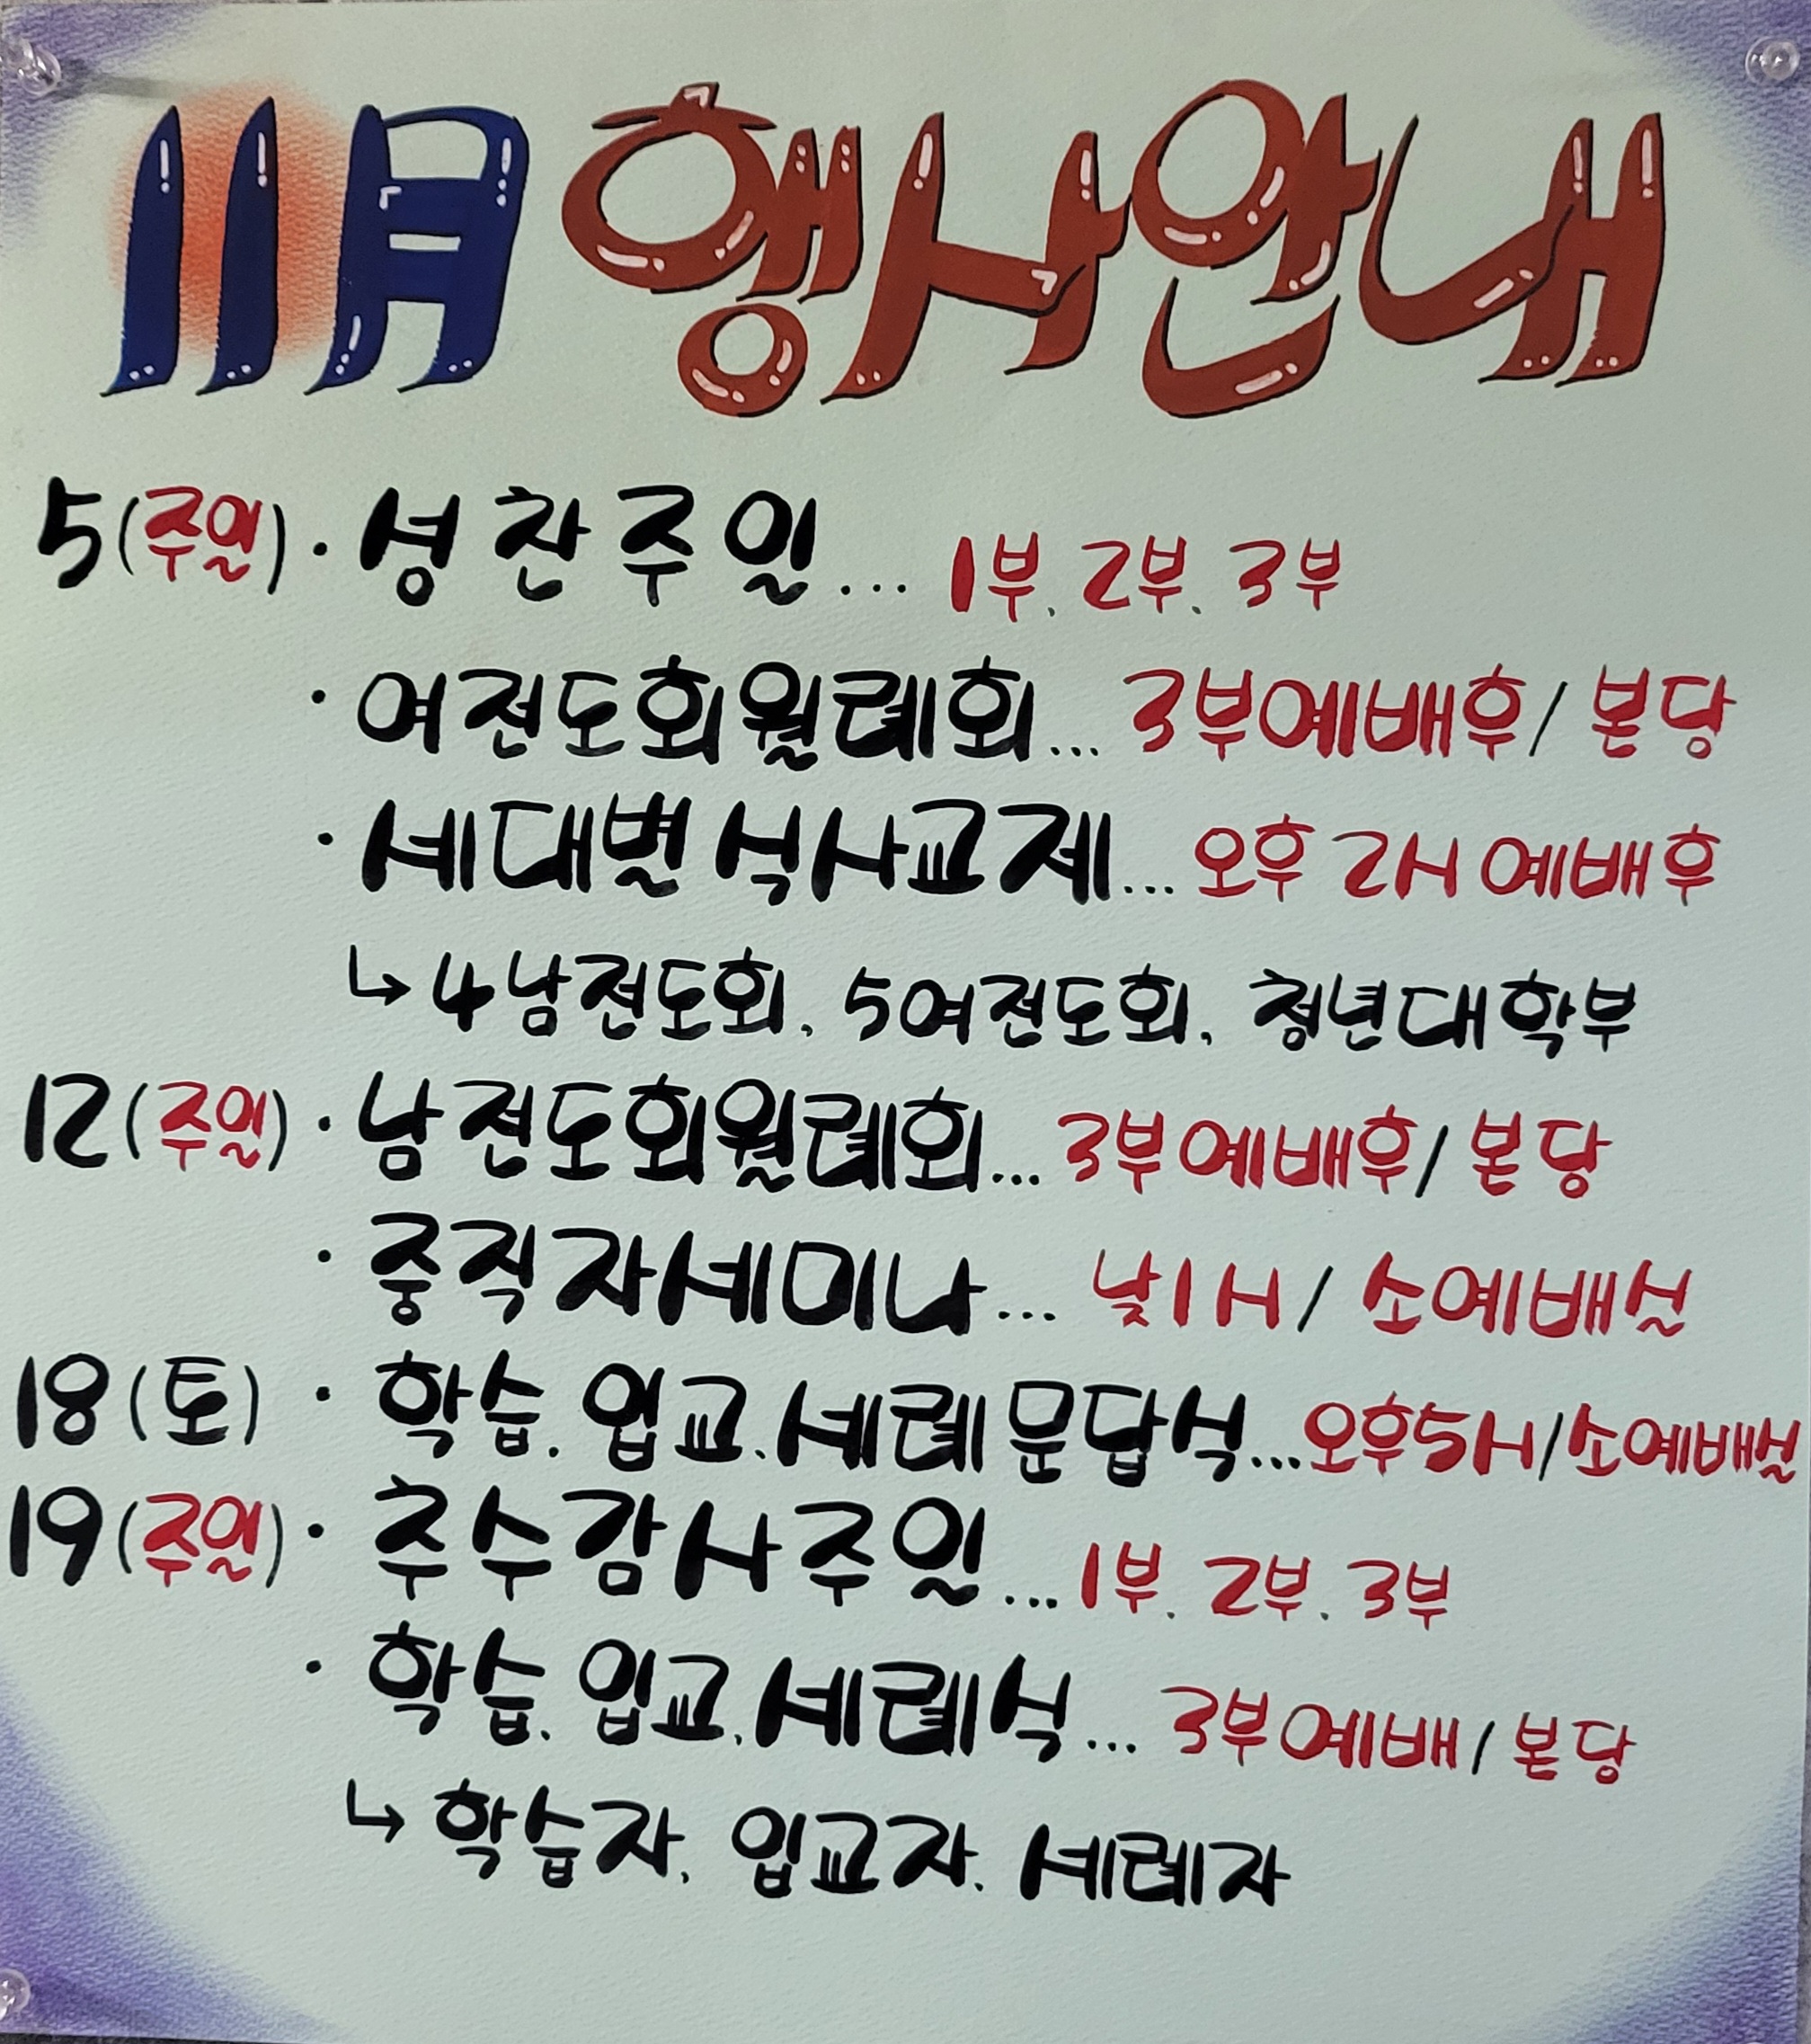 11月 행사안내
5(주일)· 성찬주일... 1부. 2부. 3부
· 여전도회월례회... 3부예배후/ 본당
· 세대별 식사교제... 오후 2시 예배후
↳ 4남전도회, 5여전도회, 청년대학부
12(주일)· 남전도회월례회... 3부예배후/ 본당
· 중직자세미나... 낮1시/ 소예배실
18(토)· 학습. 입교. 세례 문답식...오후5시/소예배실
19(주일)· 추수감사주일...1부. 2부. 3부
· 학습. 입교. 세례식... 3부예배/ 본당
↳ 학습자, 입교자. 세례자